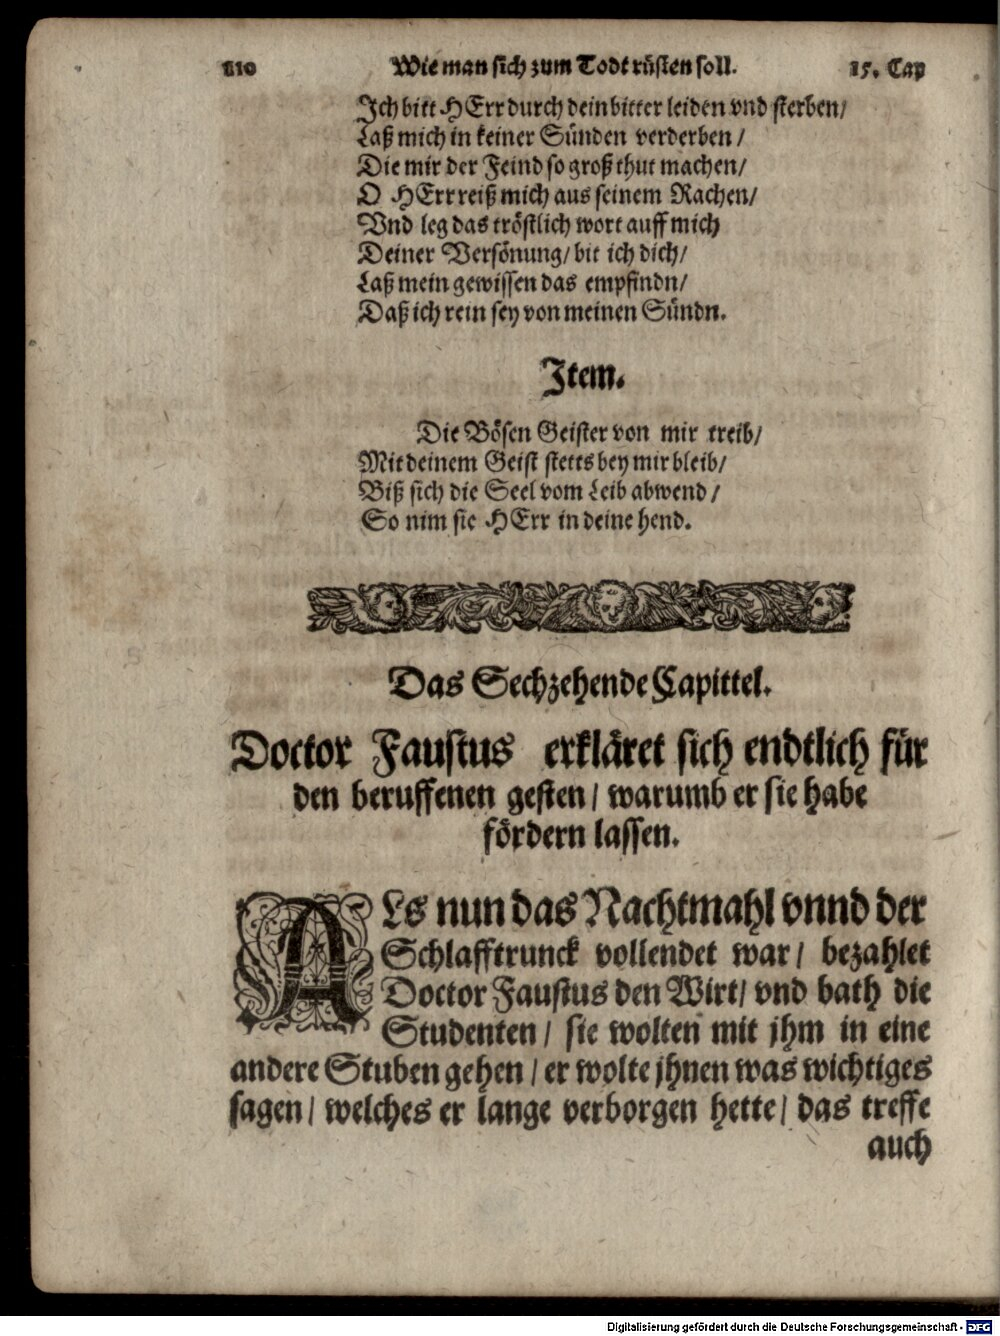 210 Wie man sich zum Todt rüsten soll. 15. Cap
Ich bitt HErr durch dein bitter leiden vnd sterben/
Laß mich in keiner Sünden verderben/
Die mir der Feind so groß thut machen/
O HErr reiß mich aus seinem Rachen/
Vnd leg das tröstlich wort auff mich
Deiner Versönung/ bit ich dich/
Laß mein gewissen das empfindn/
Daß ich rein sey von meinen Sündn.
Item.
Die Bösen Geister von mir treib/
Mit deinem Geist stetts bey mir bleib/
Biß sich die Seel vom Leib abwend/
So nim sie HErr in deine hend.
Das Sechzehende Capittel.
Doctor Faustus erkläret sich endtlich für
den beruffenen gesten/ warumb er sie habe
fördern lassen.
ALs nun das Nachtmahl vnnd der
Schlafftrunck vollendet war/ bezahlet
Doctor Faustus den Wirt/ vnd bath die
Studenten/ sie wolten mit jhm in eine
andere Stuben gehen/ er wolte jhnen was wichtiges
sagen/ welches er lange verborgen hette/ das treffe
auch
Digitalisierung gefördert durch die Deutsche Forschungsgemeinschaft - DFG